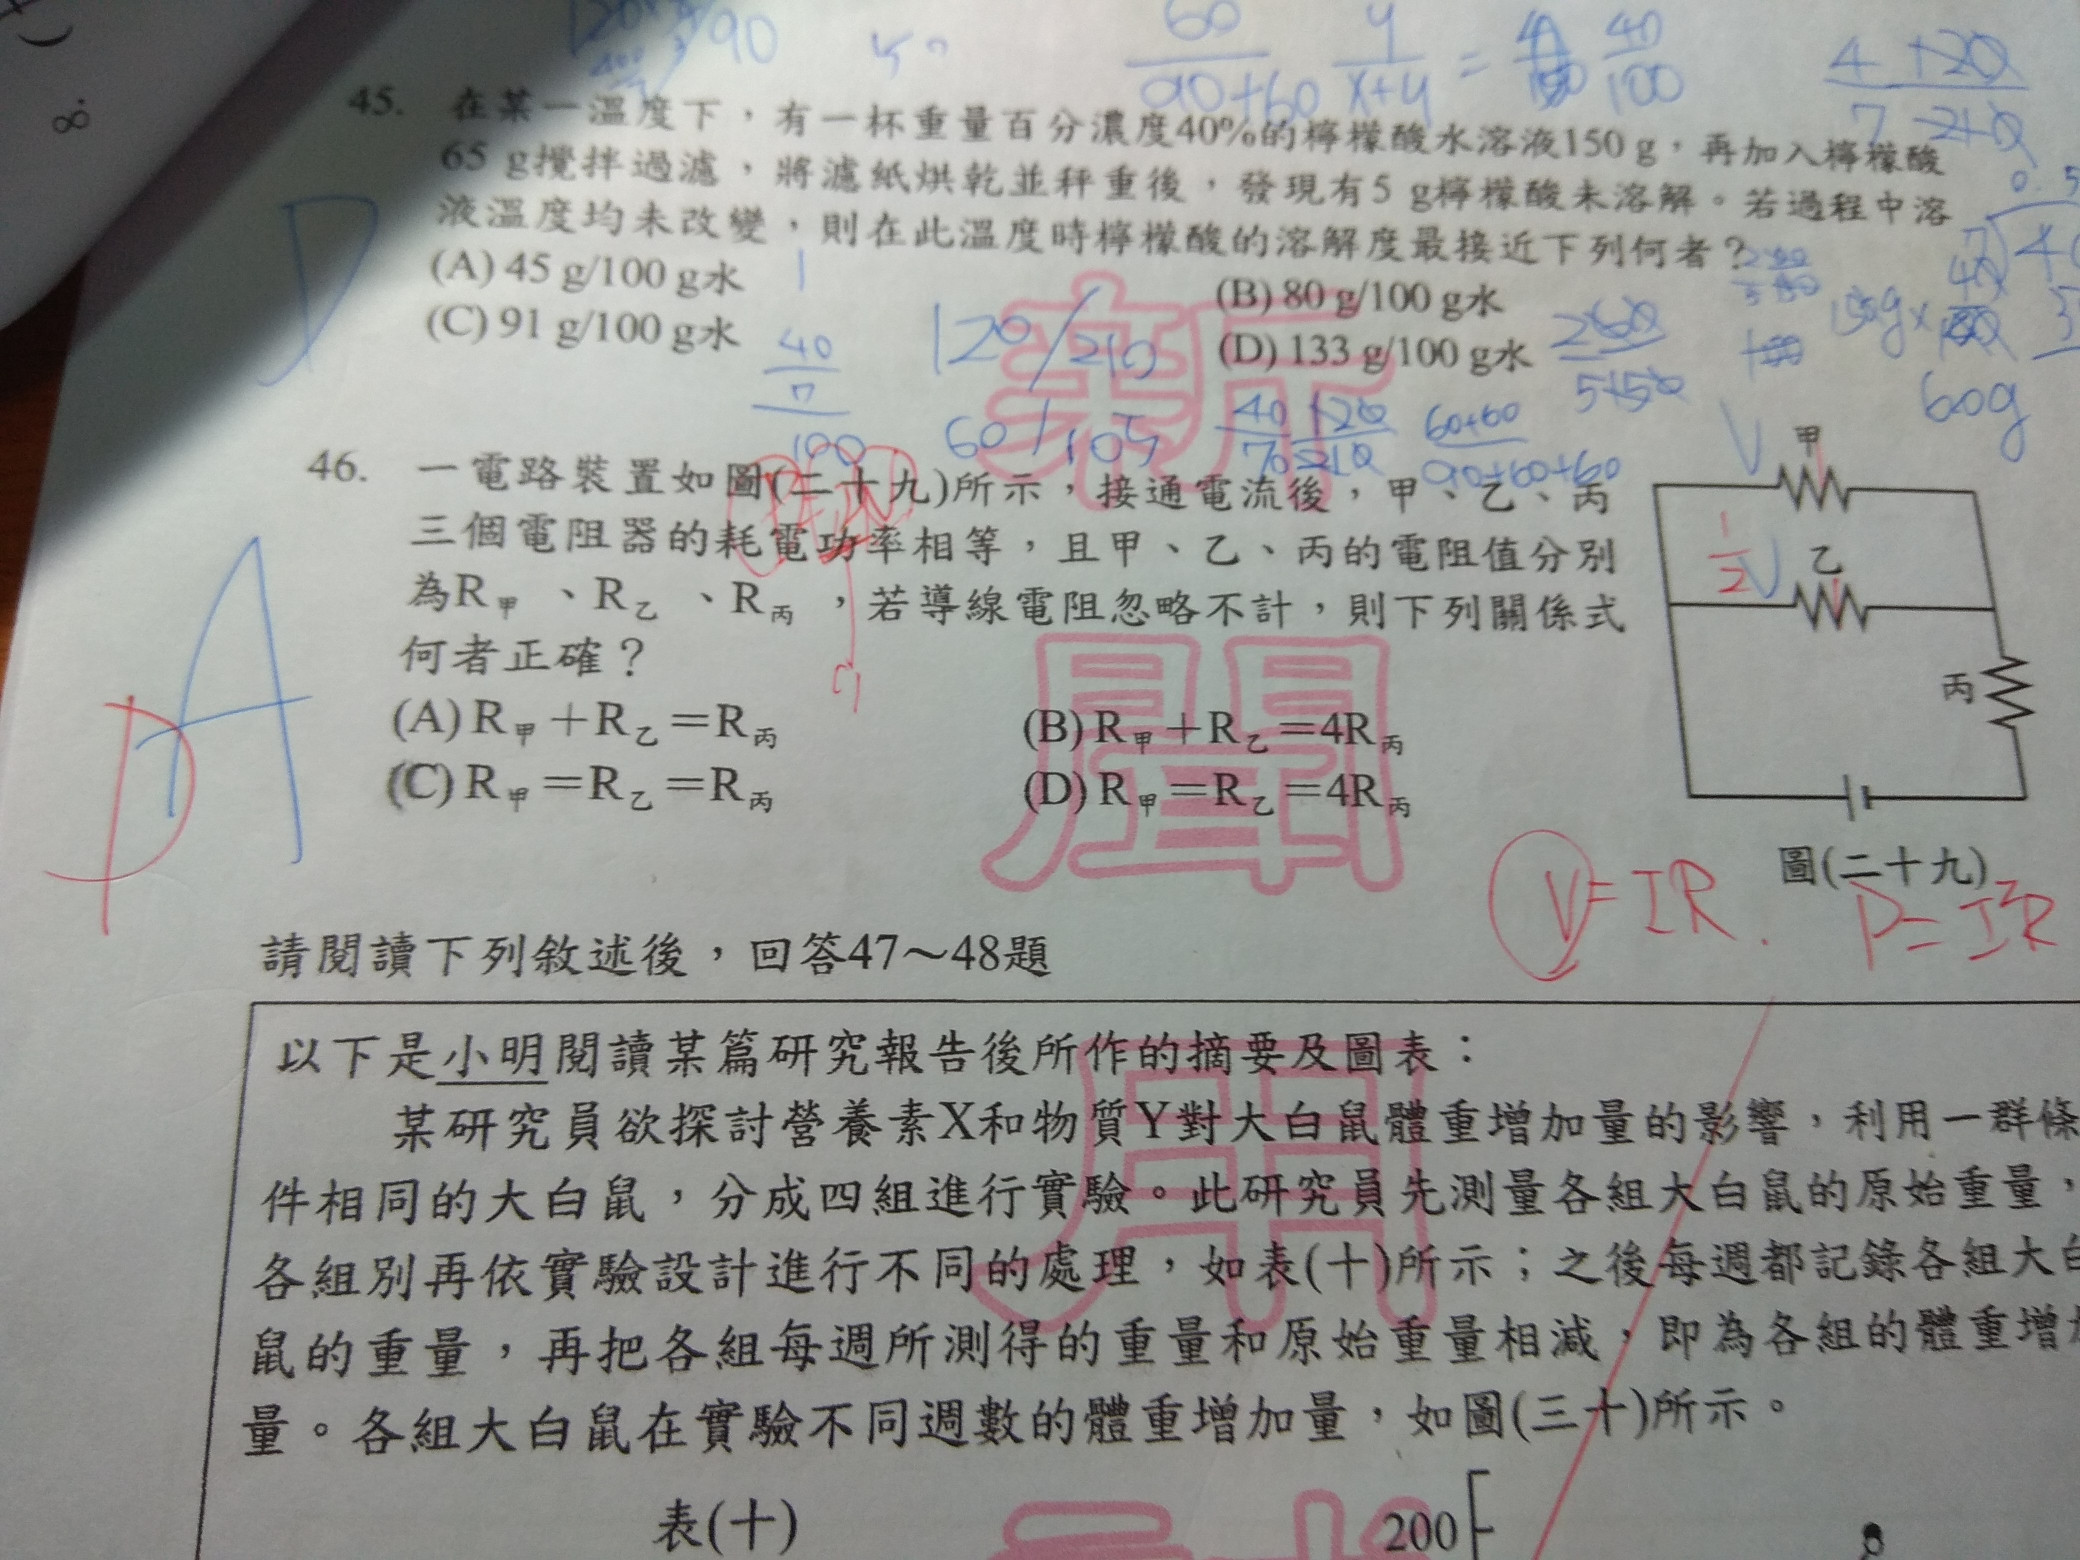 120 90
60/90+60 y/x+y = 40/100
4 120
7 210
45. 在某一溫度下，有一杯重量百分濃度40%的檸檬酸水溶液150 g，再加入檸檬酸
65 g攪拌過濾，將濾紙烘乾並秤重後，發現有5 g檸檬酸未溶解。若過程中溶
液溫度均未改變，則在此溫度時檸檬酸的溶解度最接近下列何者？
(A) 45 g/100 g水
(B) 80 g/100 g水
(C) 91 g/100 g水
(D) 133 g/100 g水
D
40
7
100
120/210
60/105
40/70 120/210 60+60/90+60+60
60g
46. 一電路裝置如圖(二十九)所示，接通電流後，甲、乙、丙
三個電阻器的耗電功率相等，且甲、乙、丙的電阻值分別
為R甲、R乙、R丙，若導線電阻忽略不計，則下列關係式
何者正確？
(A) R甲＋R乙＝R丙
(B) R甲＋R乙＝4R丙
(C) R甲＝R乙＝R丙
(D) R甲＝R乙＝4R丙
A
D
V
甲
1/2 V
乙
丙
圖(二十九)
V=IR.
P=I²R
請閱讀下列敘述後，回答47～48題
以下是小明閱讀某篇研究報告後所作的摘要及圖表：
某研究員欲探討營養素X和物質Y對大白鼠體重增加量的影響，利用一群條
件相同的大白鼠，分成四組進行實驗。此研究員先測量各組大白鼠的原始重量，
各組別再依實驗設計進行不同的處理，如表(十)所示；之後每週都記錄各組大白
鼠的重量，再把各組每週所測得的重量和原始重量相減，即為各組的體重增加
量。各組大白鼠在實驗不同週數的體重增加量，如圖(三十)所示。
表(十)
200